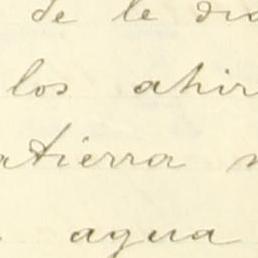 de le dia
los ahir
atierra
agua